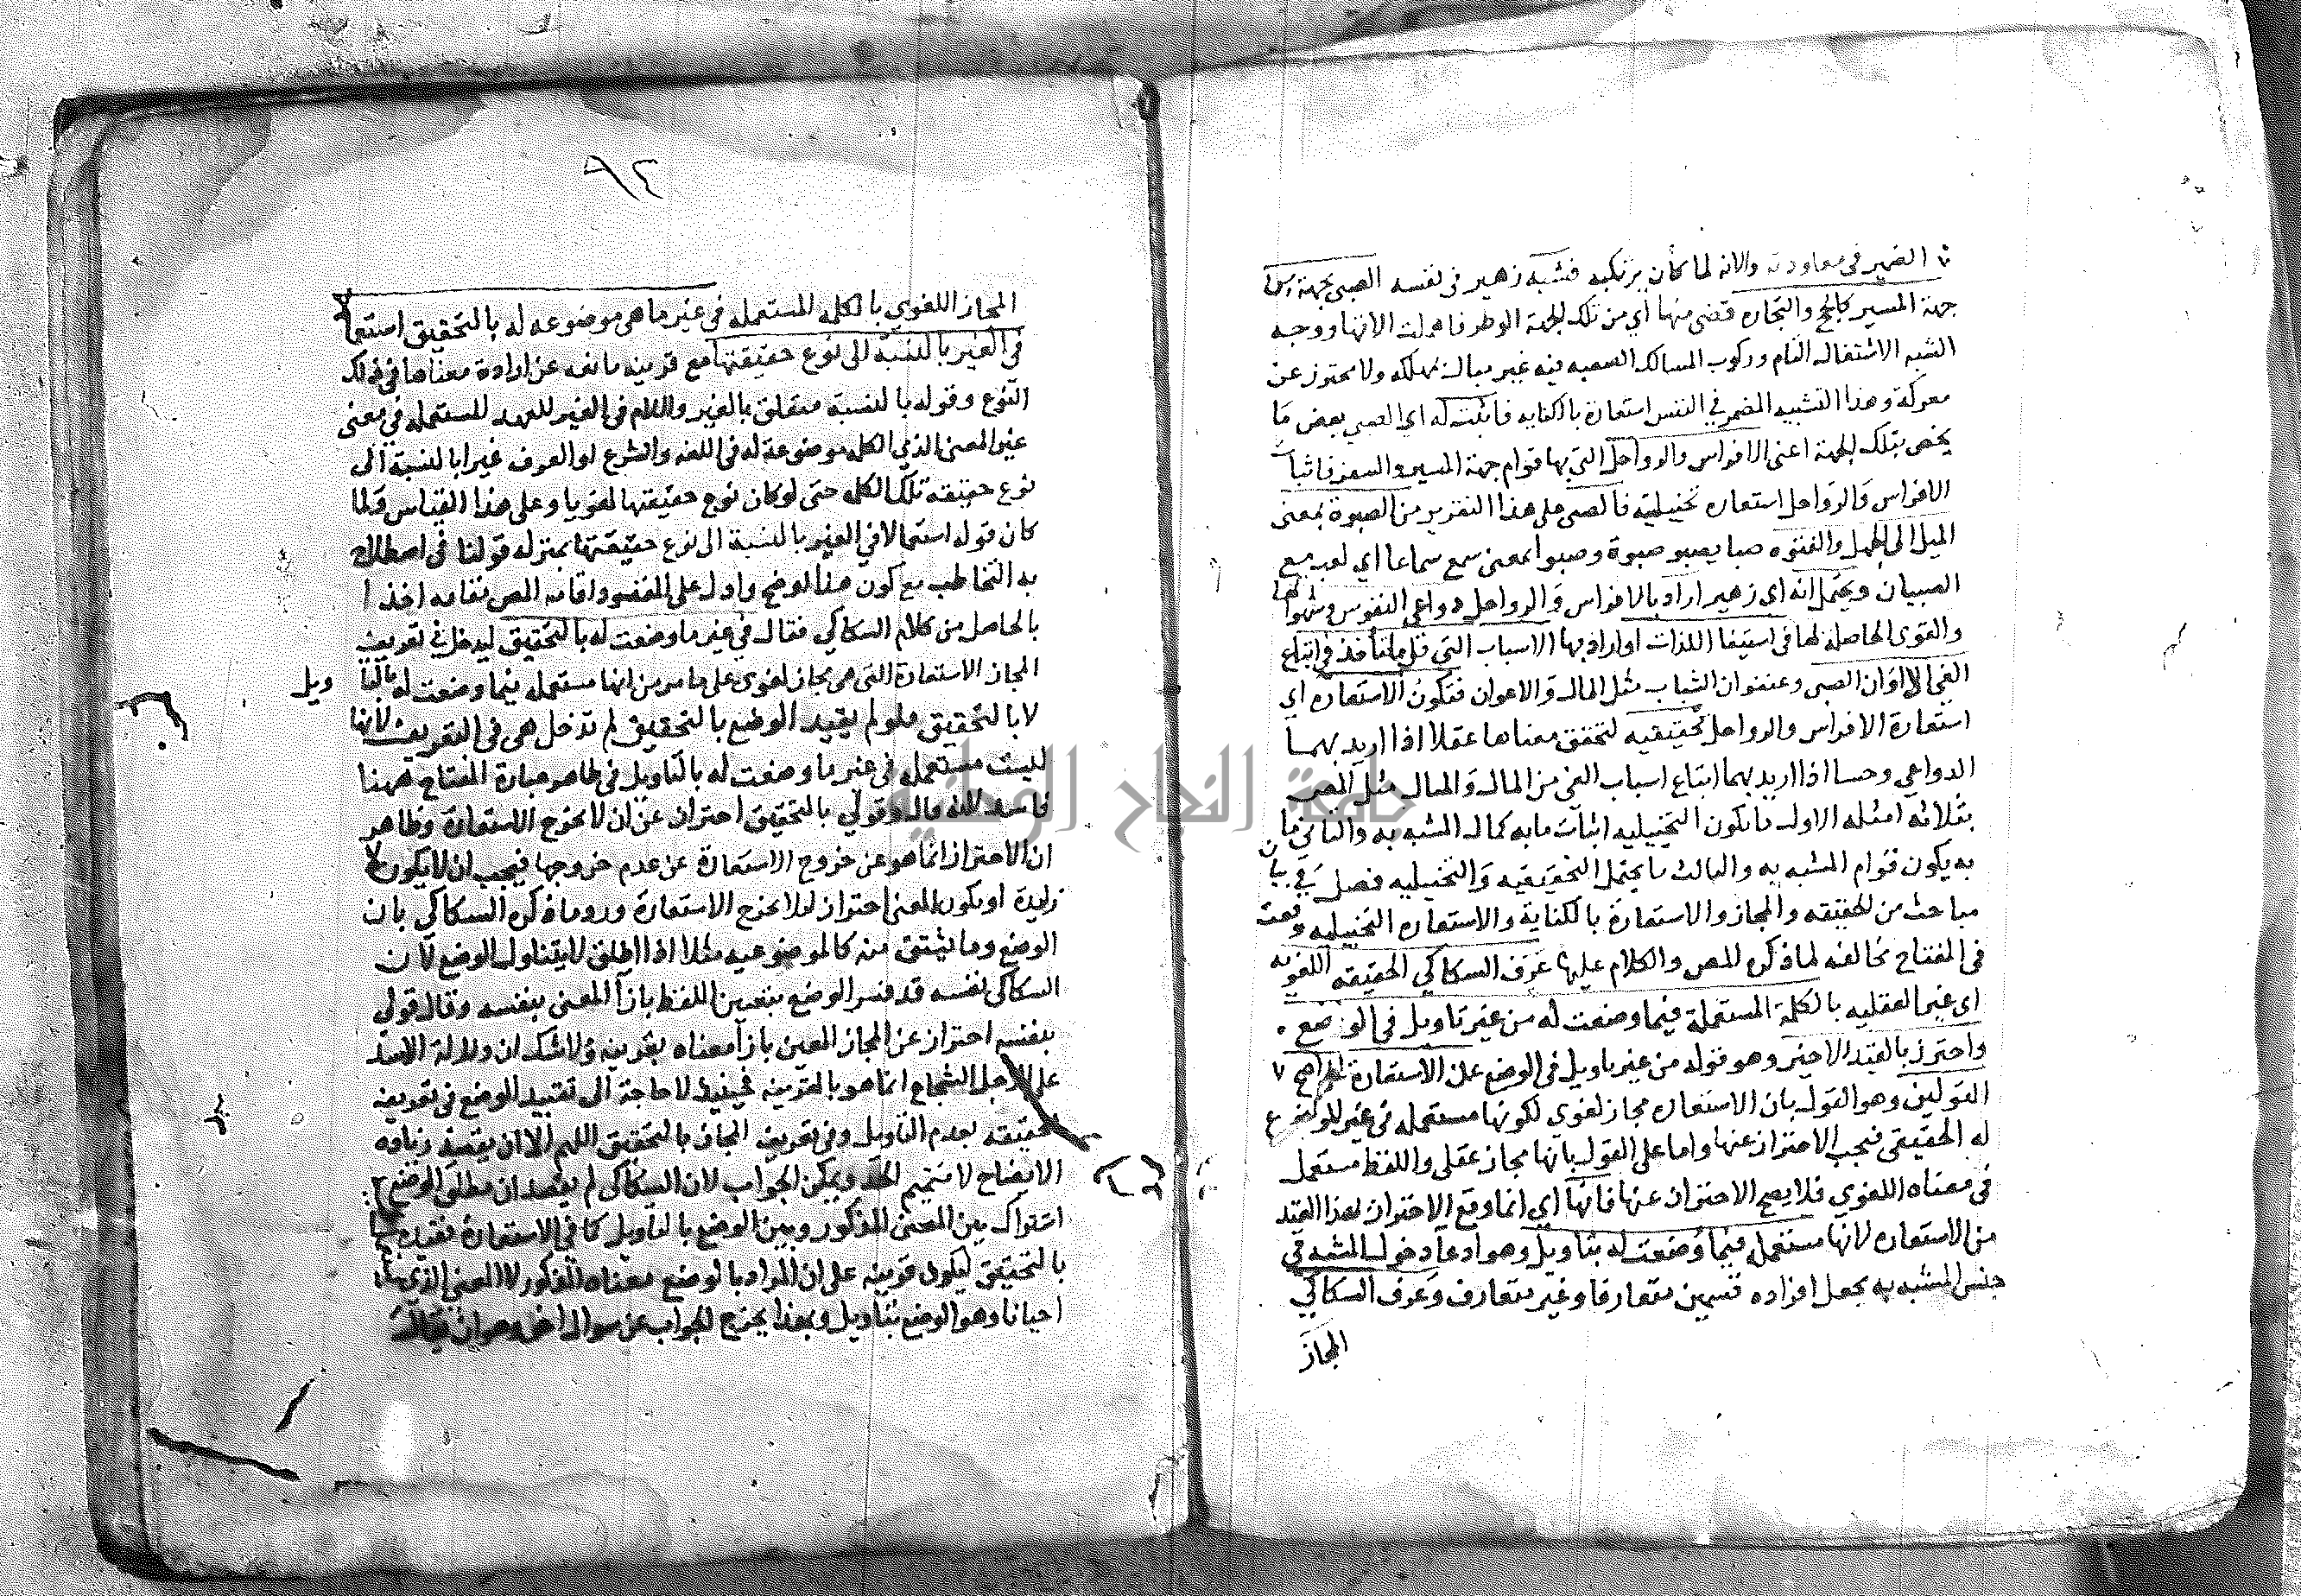 الضمير في معاودته والاته لما كان يرتكبه فشبه زهير في نفسه الصبي بجهة من
جهة المسير كالحج والتجاره قضى منها اي من تلك الجهة الوطر فاهملت الاتها ووجه
الشبه الاشتغال التام وركوب المسالك الصعبه فيه غير مبال بمهلكه ولا محترز عن
معركة وهذا التشبيه المضمر في النفس استعارة بالكنايه فاثبت له اي الصبي بعض ما
يخص بتلك الجهة اعنى الافراس والرواحل التي بها قوام جهة المسير والسفر فاثبات
الافراس والرواحل استعاره تخييلية فالصبي على هذا التقرير من الصبوة بمعنى
الميل الى الجهل والفتوه صبا يصبو صبوة وصبوا بمعنى سمع سماعا اي لعب مع
الصبيان ويحتمل انه اى زهير اراد بالافراس والرواحل دواعي النفوس وشهواتها
والقوى الحاصله لها في استيفا اللذات او اراد بها الاسباب التي قل ما تتاخذ في اتباع
الغي الا اوان الصبي وعنفوان الشباب مثل المال والاعوان فتكون الاستعاره اي
استعارة الافراس والرواحل تحقيقيه لتحقق معناها عقلا اذا اريد بهما
الدواعي وحسا اذا اريد بهما اتباع اسباب الغي من المال والمنال مثل المص
بثلاثه امثله الاول ما تكون التخييليه اثبات مابه كمال المشبه به والثاني ما
به يكون قوام المشبه به والثالث ما يحتمل التحقيقيه والتخييليه فصل في بيان
مباحث من الحقيقه والمجاز والاستعارة بالكناية والاستعاره التخييليه وقعت
في المفتاح مخالفه لما ذكره المص والكلام عليها عرف السكاكي الحقيقه اللغويه
اى غير العقليه بالكلمة المستعملة فيما وضعت له من غير تاويل في الوضع
واحترز بالقيد الاخير وهو قوله من غير تاويل في الوضع عن الاستعارة على اصح
القولين وهو القول بان الاستعاره مجاز لغوي لكونها مستعمله في غير الموضوع
له الحقيقى فيجب الاحتراز عنها واما على القول بانها مجاز عقلي واللفظ مستعمل
في معناه اللغوي فلا يصح الاحتراز عنها فانها اي انما وقع الاحتراز لهذا القيد
من الاستعاره لانها مستعمله فيما وضعت له بتاويل وهو ادعا دخول المشبه في
جنس المشبه به بجعل افراده قسمين متعارفا وغير متعارف وعرف السكاكي
المجاز
٩٢
المجاز اللغوي بالكلمه المستعمله في غير ما هي موضوعه له بالتحقيق استعمالا
في الغير بالنسبة الى نوع حقيقتها مع قرينه مانعه عن ارادة معناها في ذلك
النوع وقوله بالنسبة متعلق بالغير واللام في الغير للعهد للمستعمله في معنى
غير المعنى الذي الكلمه موضوعة له في اللغه والشرع او العرف غيرا بالنسبة الى
نوع حقيقه تلك الكلمه حتى لو كان نوع حقيقتها لغويا وعلى هذا القياس ولما
كان قوله استعمالا في الغير بالنسبة الى نوع حقيقتها بمنزله قولنا في اصطلاح
به التخاطب مع كون هذا اوضح وادل على المقصود اقامه المص مقامه اخذا
بالحاصل من كلام السكاكي فقال في غير ما وضعت له بالتحقيق ليدخل في تعريف
المجاز الاستعارة التي هي مجاز لغوي على ما مر من انها مستعمله فيما وضعت له بالتا ويل
لا بالتحقيق فلو لم يقيد الوضع بالتحقيق لم تدخل هي في التعريف لانها
ليست مستعمله في غير ما وضعت له بالتاويل في ظاهر عبارة المفتاح ههنا
فاسد لانه قال وقولي بالتحقيق احتراز عن ان لا تخرج الاستعارة وظاهر
ان الاحتراز انما هو عن خروج الاستعارة عن عدم خروجها فيجب ان لا يكون لا
زايدة او يكون المعنى احتراز لئلا تخرج الاستعارة ورد ما ذكره السكاكي بان
الوضع وما يشتق منه كالموضوعيه مثلا اذا اطلق لا يتناول الوضع لان
السكاكي نفسه قد فسر الوضع بتعيين اللفظ بازا المعنى بنفسه وقال قولي
بنفسه احتراز عن المجاز المعين بازا معناه بقرينه ولا شك ان دلالة الاسد
على الرجل الشجاع انما هو بالقرينه فحينئذ لا حاجة الى تقييد الوضع في تعريف
الحقيقه بعدم التاويل وفي تعريف المجاز بالتحقيق اللهم الا ان يقصد زيادة
الايضاح لا تتميم الحد ويمكن الجواب لان السكاكي لم يقصد ان مطلق الوضع
اشتراك بين المعنى المذكور وبين الوضع بالتاويل كما في الاستعارة فقيده
بالتحقيق ليكون قرينه على ان المراد بالوضع معناه المذكور لا المعنى الذي
احيانا وهو الوضع بتاويل وبهذا يخرج الجواب عن سوال اخر وهو ان يقال
جامعة النجاح الوطنية